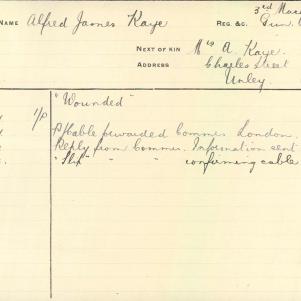 NAME Alfred James Kaye REG. &C. 3rd Mac
NEXT OF KIN Mrs A Kaye.
ADDRESS Charles Street
Unley
"Wounded"
forwarded Commes London.
Reply from Commes. Information sent
" " confirming cable